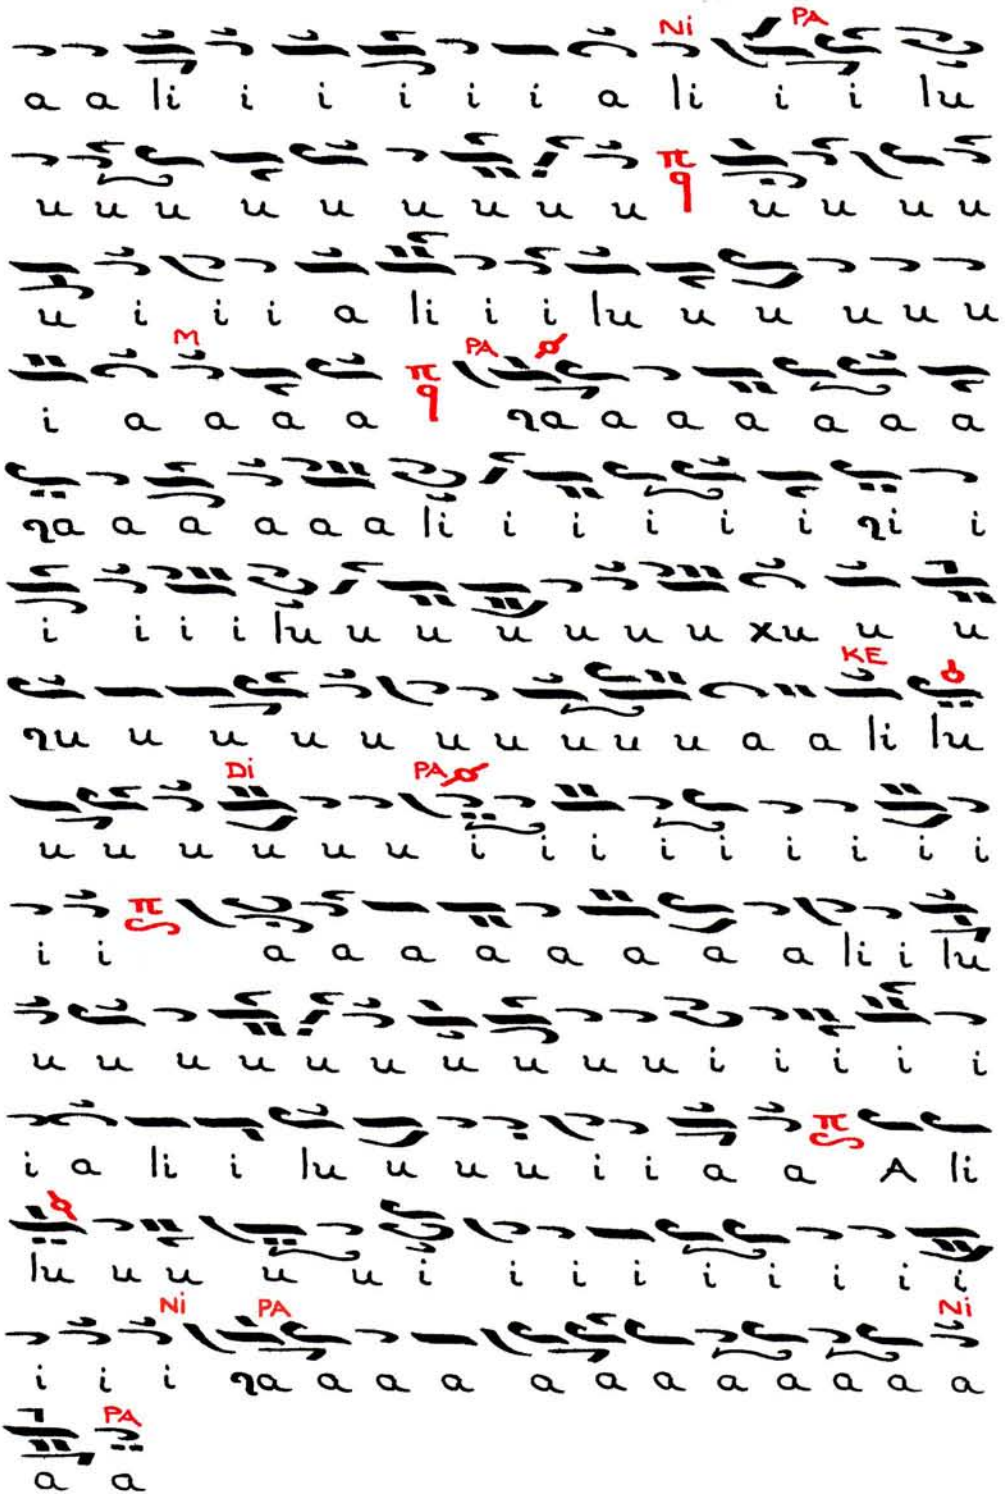 Ni PA
a a li i i i i i a li i i lu
π q
u u u u u u u u u u u u u
u i i i a li i i lu u u u u u
M π q PA
i a a a a ꝛa a a a a a a
ꝛa a a a a a li i i i i i ꝛi i
i i i i lu u u u u u u xu u u
KE
ꝛu u u u u u u u u u a a li lu
Di PA
u u u u u u i i i i i i i i i
π
i i a a a a a a a a li i lu
u u u u u u u u u u i i i i i
π
i a li i lu u u u i i a a A li
lu u u u u i i i i i i i i i
Ni PA Ni
i i i ꝛa a a a a a a a a a a a
PA
a a